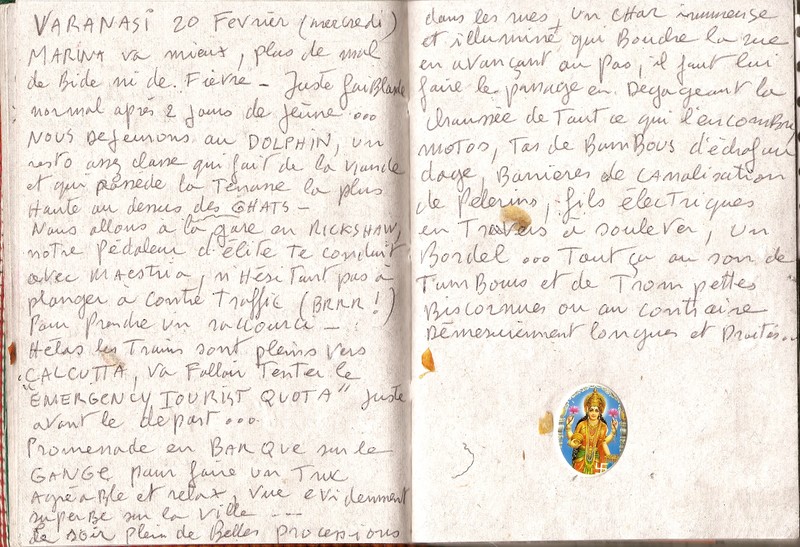 VARANASI 20 Février (mercredi)
MARINA va mieux, plus de mal
de Bide ni de Fièvre - Juste faiBlarde
normal après 2 jours de jeûne ...
NOUS DEJEUNONS au DOLPHIN, un
resto assez classe qui fait de la viande
et qui possède la Terrasse la plus
Haute au dessus des GHATS -
Nous allons à la gare en RICKSHAW,
notre Pédaleur d'élite te conduit
avec MAESTRIA, n'HésiTant pas à
plonger à contre Traffic (BRRR !)
Pour Prendre un raccourci -
Hélas les Trains sont pleins vers
CALCUTTA, va Falloir Tenter le
"EMERGENCY TOURIST QUOTA" Juste
avant le départ ...
Promenade en BARQUE sur le
GANGE pour faire un Truc
AgréaBle et relax, vue evidemment
superBe sur la Ville ---
Le soir plein de Belles processions
dans les rues, un CHAR immense
et illuminé, qui Boudre la rue
en avançant au pas, il faut lui
faire le passage en Dégageant la
chaussée de Tout ce qui l'encombre,
MOTOS, Tas de BamBOUS d'échafau
dage, Barrières de CANAlisation
de Pélerins, fils électriques
en Travers à soulever, un
Bordel ... Tout ça au son de
TamBours et de Trompettes
Biscornues ou au contraire
Démesurément longues et Droites..